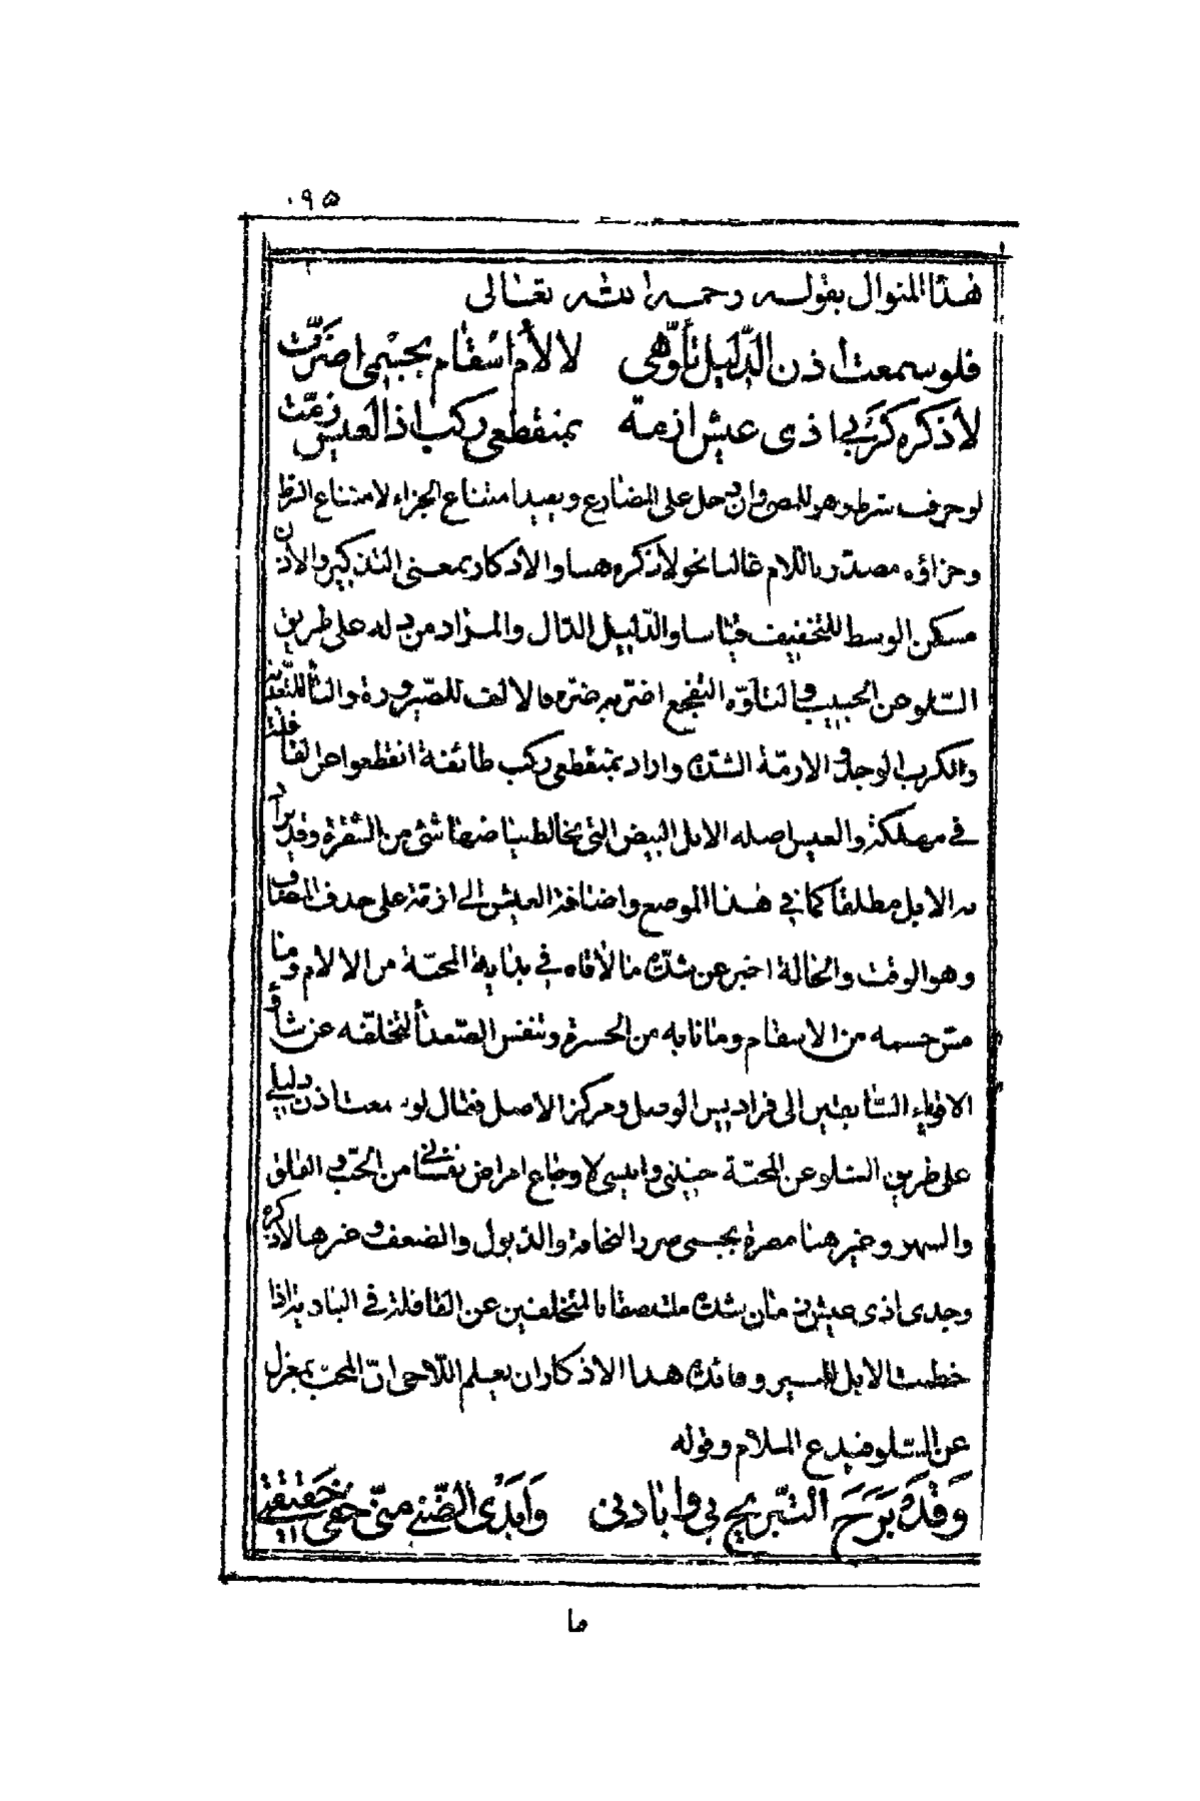 ۰۹۵
هذا المنوال بقوله رحمه الله تعالى
فلو سمعت أذن الدليل تأوّهي لآلام أسقام بجسمي أضرّت
لأذكره كربي أذى عيش أزمة بمنقطعي ركب إذا العيس زمّت
لو حرف شرط وهو للمضي وان دخل على المضارع ويفيد امتناع الجزاء لامتناع الشرط
وجزاؤه مصدّر باللام غالبا نحو لأذكره هنا والاذكار بمعنى التذكير والأذن
مسكن الوسط للتخفيف قياسا والدّليل الدال والمراد من دله على طريق
السّلو عن الحبيب والتأوّه التفجع اضرّ به ضرّه فالالف للصّيرورة والتأ للتعدية
والكرب الوجد والازمّة الشدّة واراد بمنقطعي ركب طائفة انقطعوا عن القافلة
في مهلكة والعيس اصله الابل البيض التي يخالط بياضها شئ من الشقرة وقد يراد
به الابل مطلقا كما في هذا الموضع واضافة العيش الى ازمة على حذف المضاف
وهو الوقت والحالة اخبر عن شدّة ما لاقاه في بداية المحبّة من الالام وما
مسّ جسمه من الاسقام وما نابه من الحسرة وتنفس الصّعدأ لتخلفه عن شأو
الاقوياء السّابقين الى فراديس الوصل ومركز الاصل فقال لو سمعت اذن دليلي
على طريق السّلو عن المحبّة حنيني وانيني لاوجاع امراض نفسانى من الحبّ والقلق
والسهر وغيرهنا مضرة بجسمي من النحافة والذبول والضعف وغيرها لاذكره
وجدي اذى عيش زمان شدّة ملتصقا بالمتخلفين عن القافلة في البادية اذا
خطمت الابل للسير وفائدة هذا الاذكار ان يعلم اللّاحي انّ المحبّ بمعزل
عن السّلو فيدع الملام وقوله
وَقَدْ بَرَّحَ التّبريح بي وأبادني وَأبدى الضّنى منّي خفيّ حقيقتي
ما